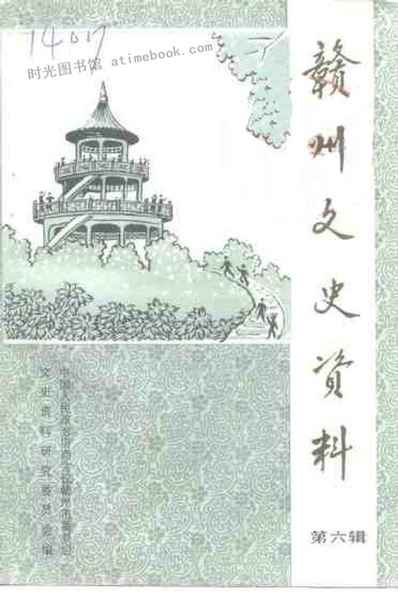 1407
时光图书馆 atimebook.com
赣州文史资料
第六辑
中国人民政治协商会议赣州市委员会
文史资料研究委员会编